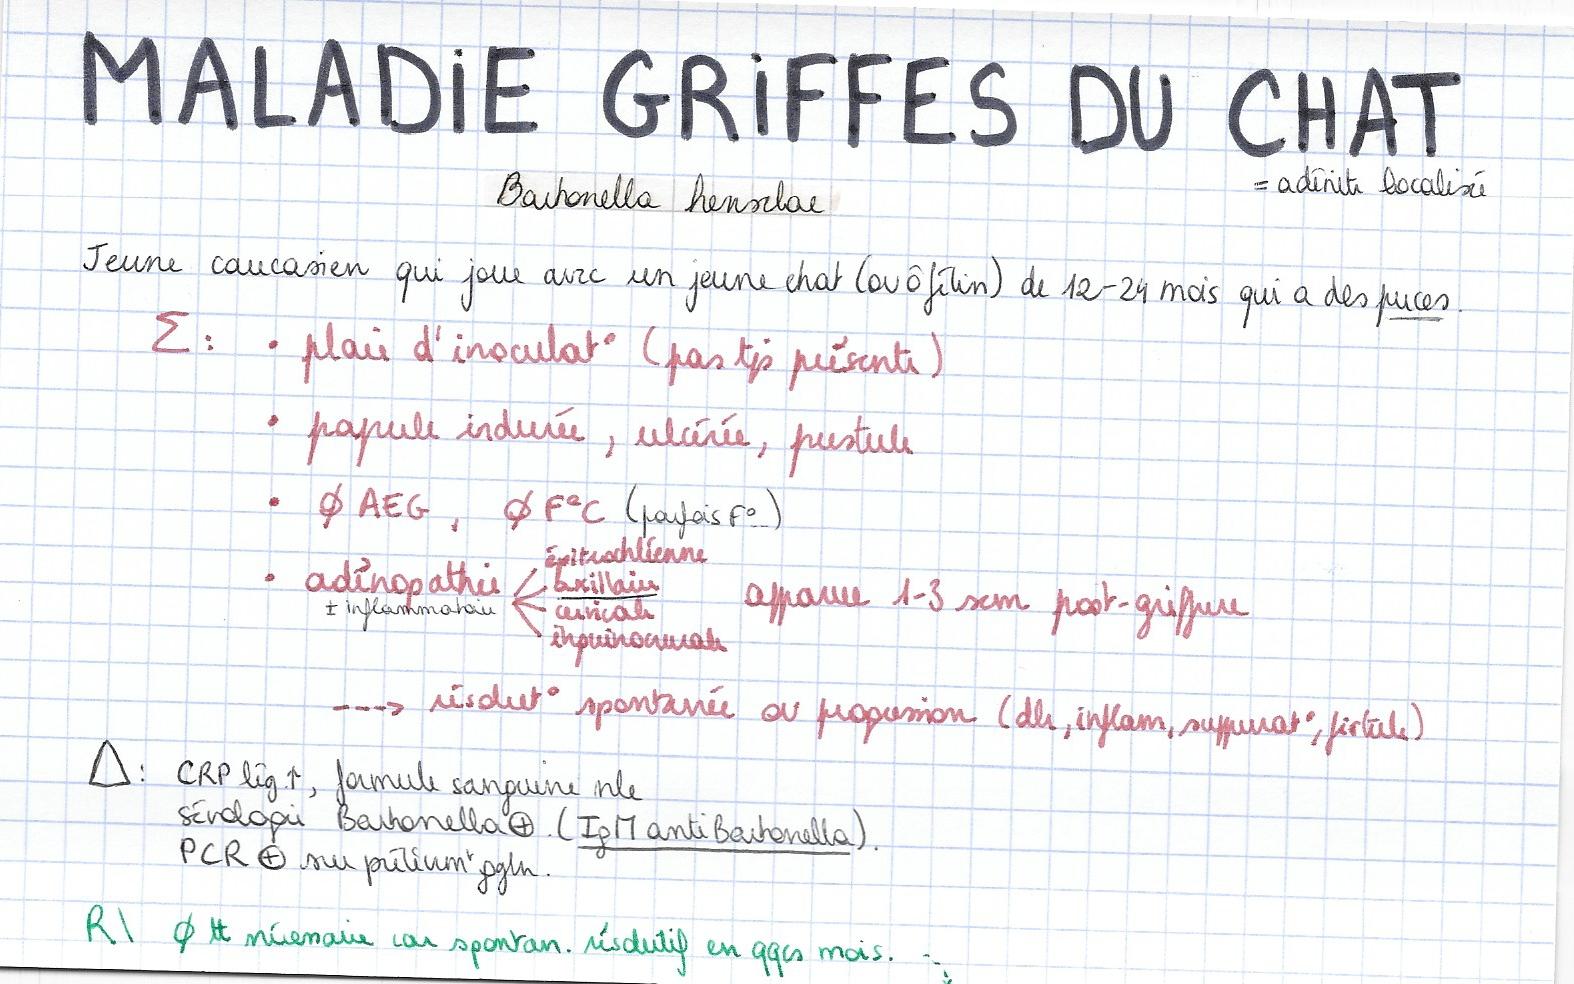 MALADIE GRIFFES DU CHAT
= adénite localisée
Bartonella henselae
Jeune caucasien qui joue avec un jeune chat (ou ô félin) de 12-24 mois qui a des puces.
Σ : • plaie d'inoculat° (pas tjs présente)
• papule indurée, ulcérée, pustule
• ∅ AEG, ∅ F°C (parfois F°..)
• adénopathie ± inflammatoire
épitrochléenne
axillaire
cervicale
inguinocrurale
apparue 1-3 sem post-griffure
---> résolut° spontanée ou progression (dlr, inflam, suppurat°, fistule)
Δ : CRP lég ↑, formule sanguine nle
sérologie Bartonella ⊕. (IgM anti Bartonella).
PCR ⊕ sur prélèvmt ggln.
R\ ∅ tt nécessaire car spontan. résolutif en qqes mois.